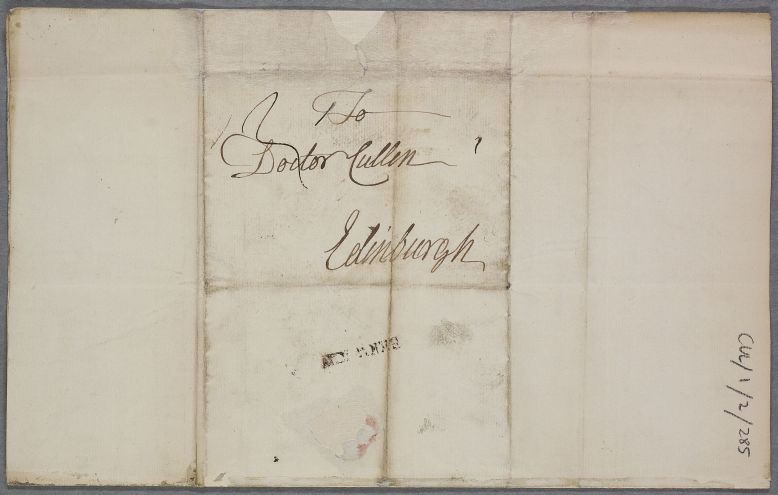 To
Doctor Cullen
Edinburgh
CUL/1/2/285